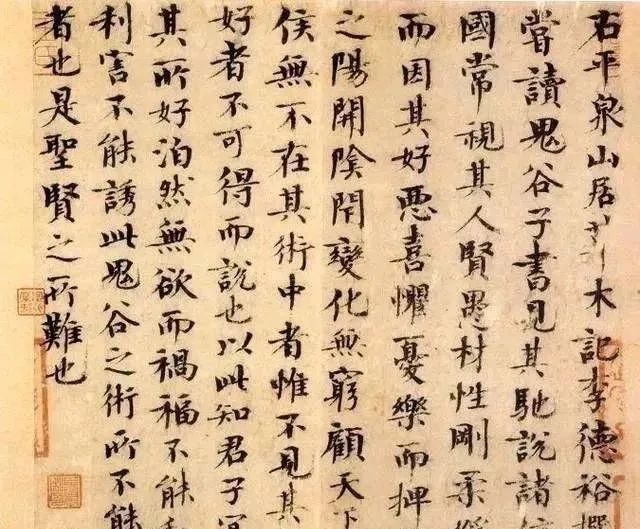 右平泉山居草木記李德裕撰
嘗讀鬼谷子書見其馳說諸
國常視其人賢愚材性剛柔
而因其好惡喜懼憂樂而捭
之陽開陰閉變化無窮顧天下
侯無不在其術中者惟不見其
好者不可得而說也以此知君子宜
其所好泊然無欲而禍福不能
利害不能誘此鬼谷之術所不能
者也是聖賢之所難也